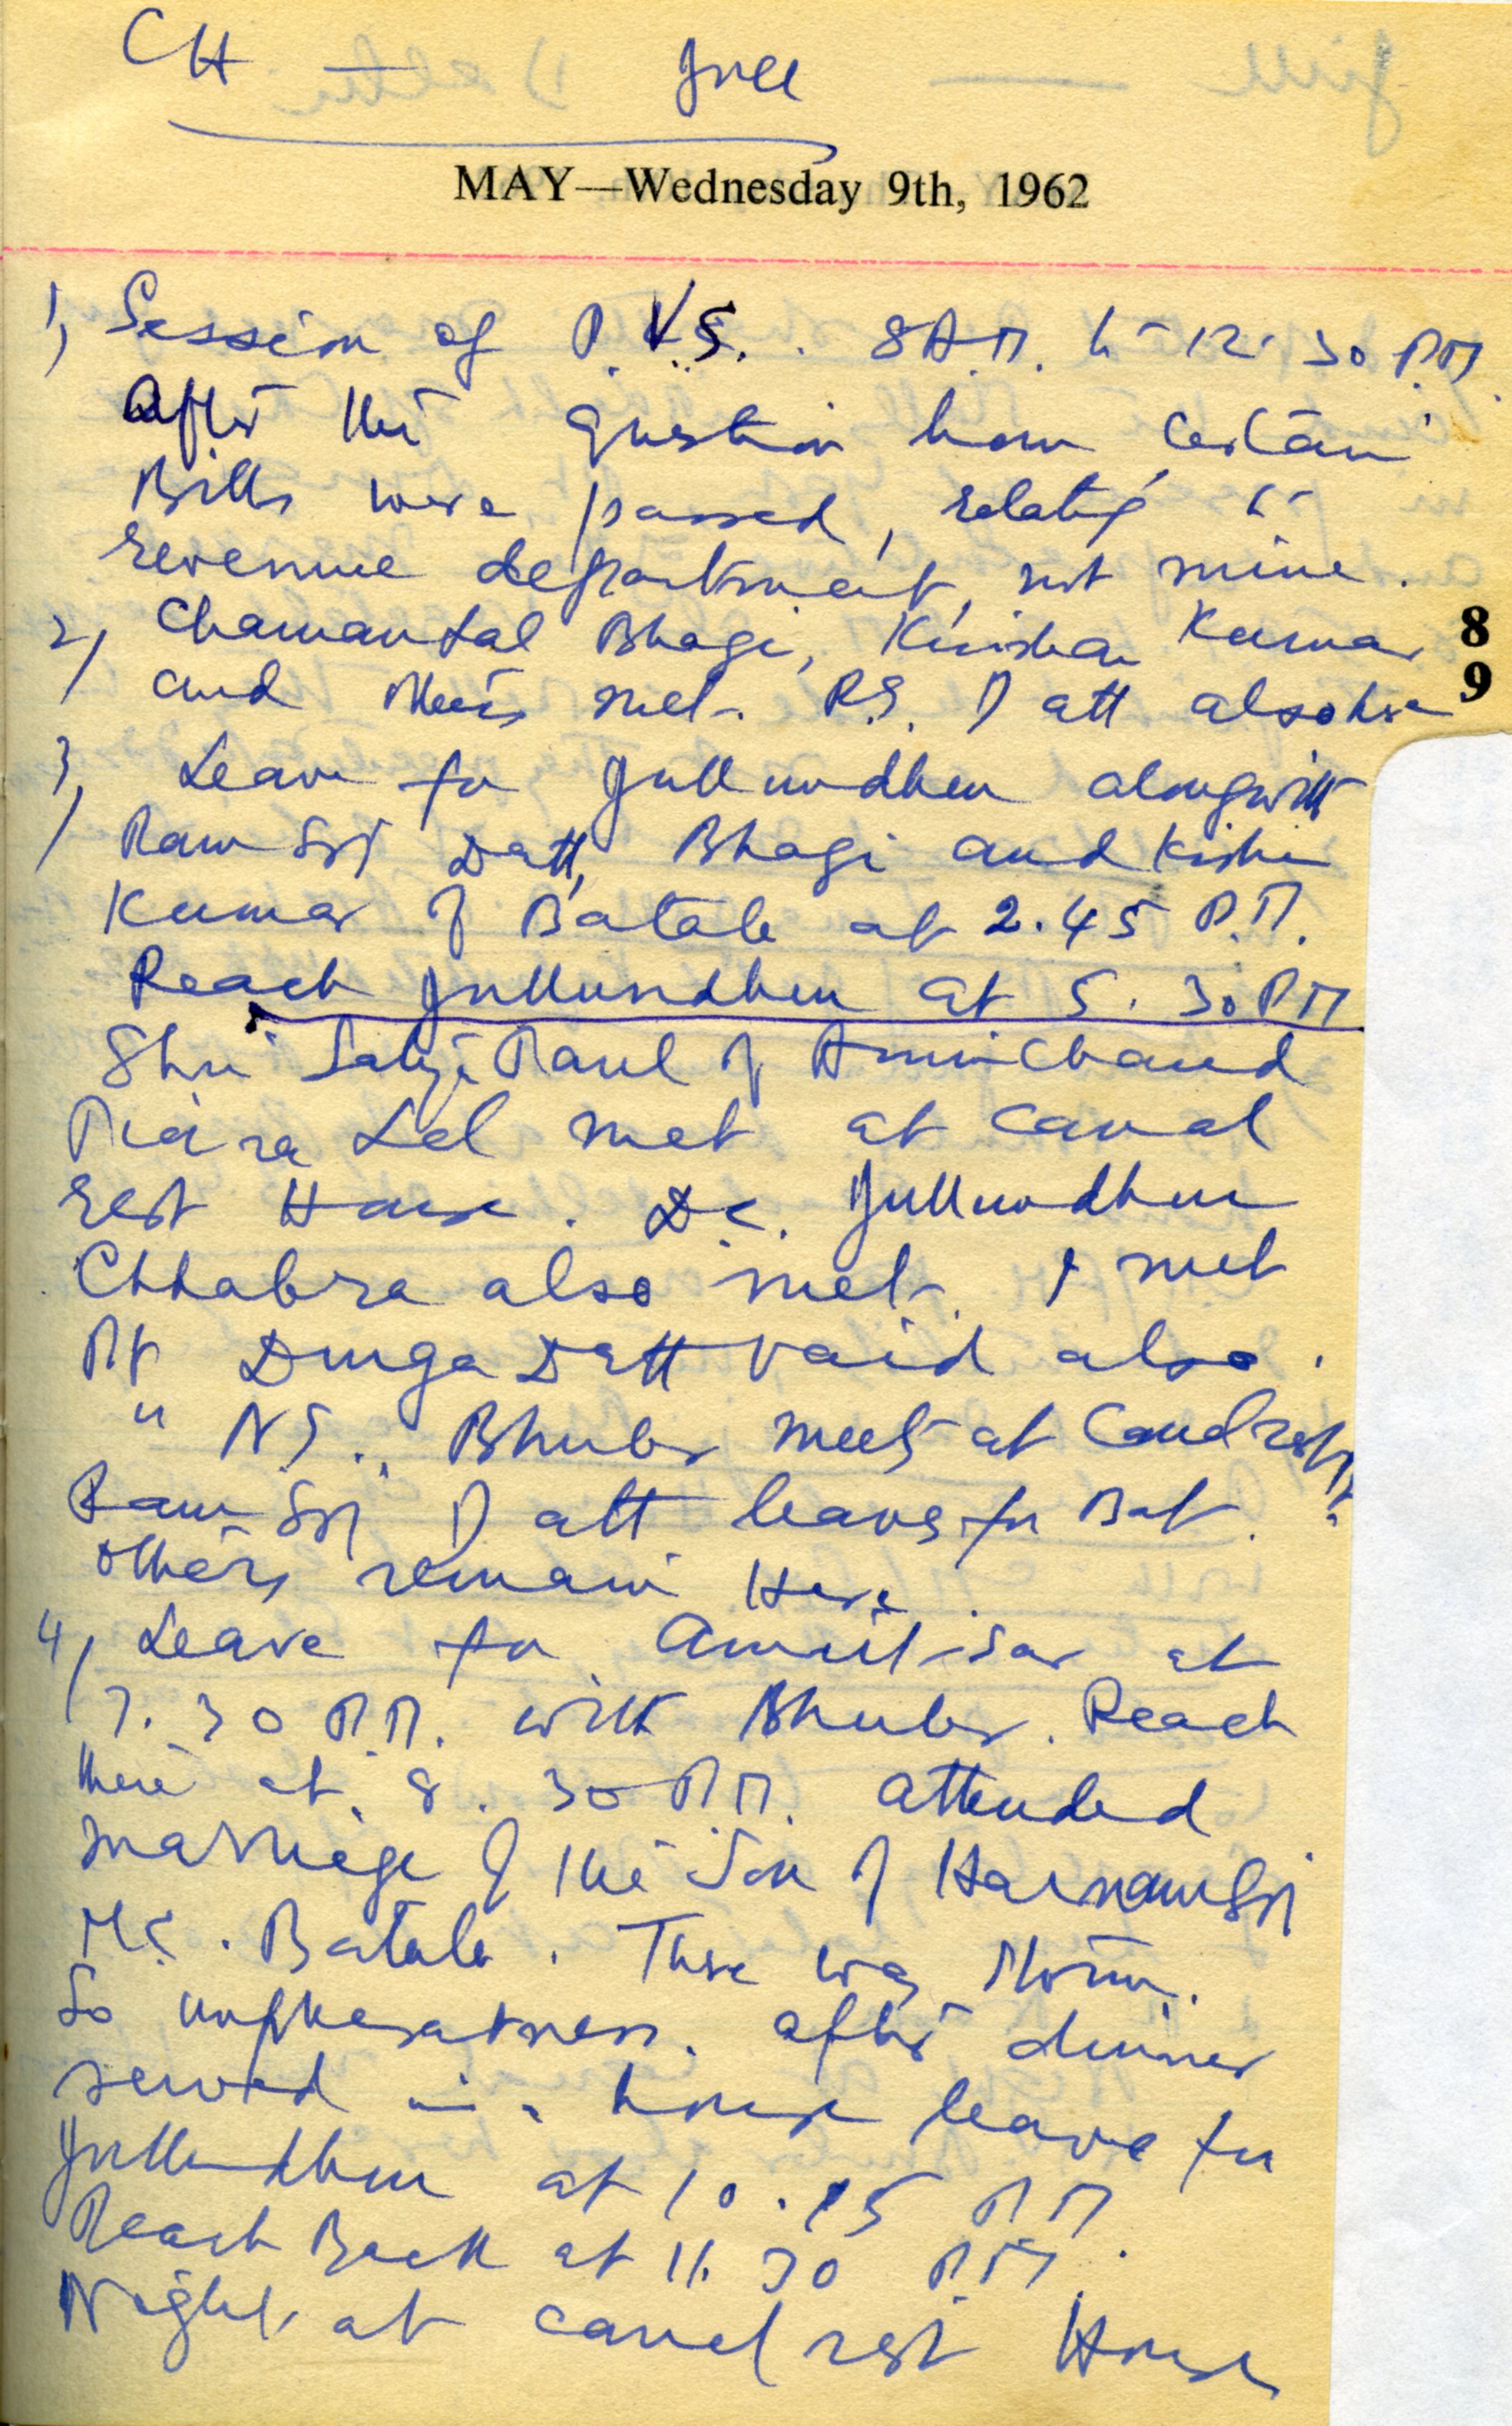 CH — Jull
MAY—Wednesday 9th, 1962
1, Session of P.V.S. 8 A.M. to 12.30 P.M.
After the question hour certain
Bills were passed, relating to
revenue department, not mine.
2, Chamanlal Bhagi, Krishan Kumar
and others met. R.S. Datt also here
3, Leave for Jullundhur alongwith
Ram Sn Datt, Bhagi and Kishen
Kumar of Batala at 2.45 P.M.
Reach Jullundhur at 5.30 PM
Shri Satya Paul of Aminchand
Piara Lal met at canal
rest House. D.C. Jullundhur
Chhabra also met. I met
Pt Durga Datt Vaid also.
" N.S. Bhuler meets at Canal rest H.
Ram Sn Datt leaves for Bat.
others remain Here.
4, Leave for Amritsar at
7.30 P.M. with Bhuler. Reach
there at 8.30 P.M. attended
marriage of the Son of Harnam Sn
MC. Batala. There was
So unpleasantness. After dinner
served in a house leave for
Jullundhur at 10.15 PM
Reach Back at 11.30 P.M.
Night at canal rest House